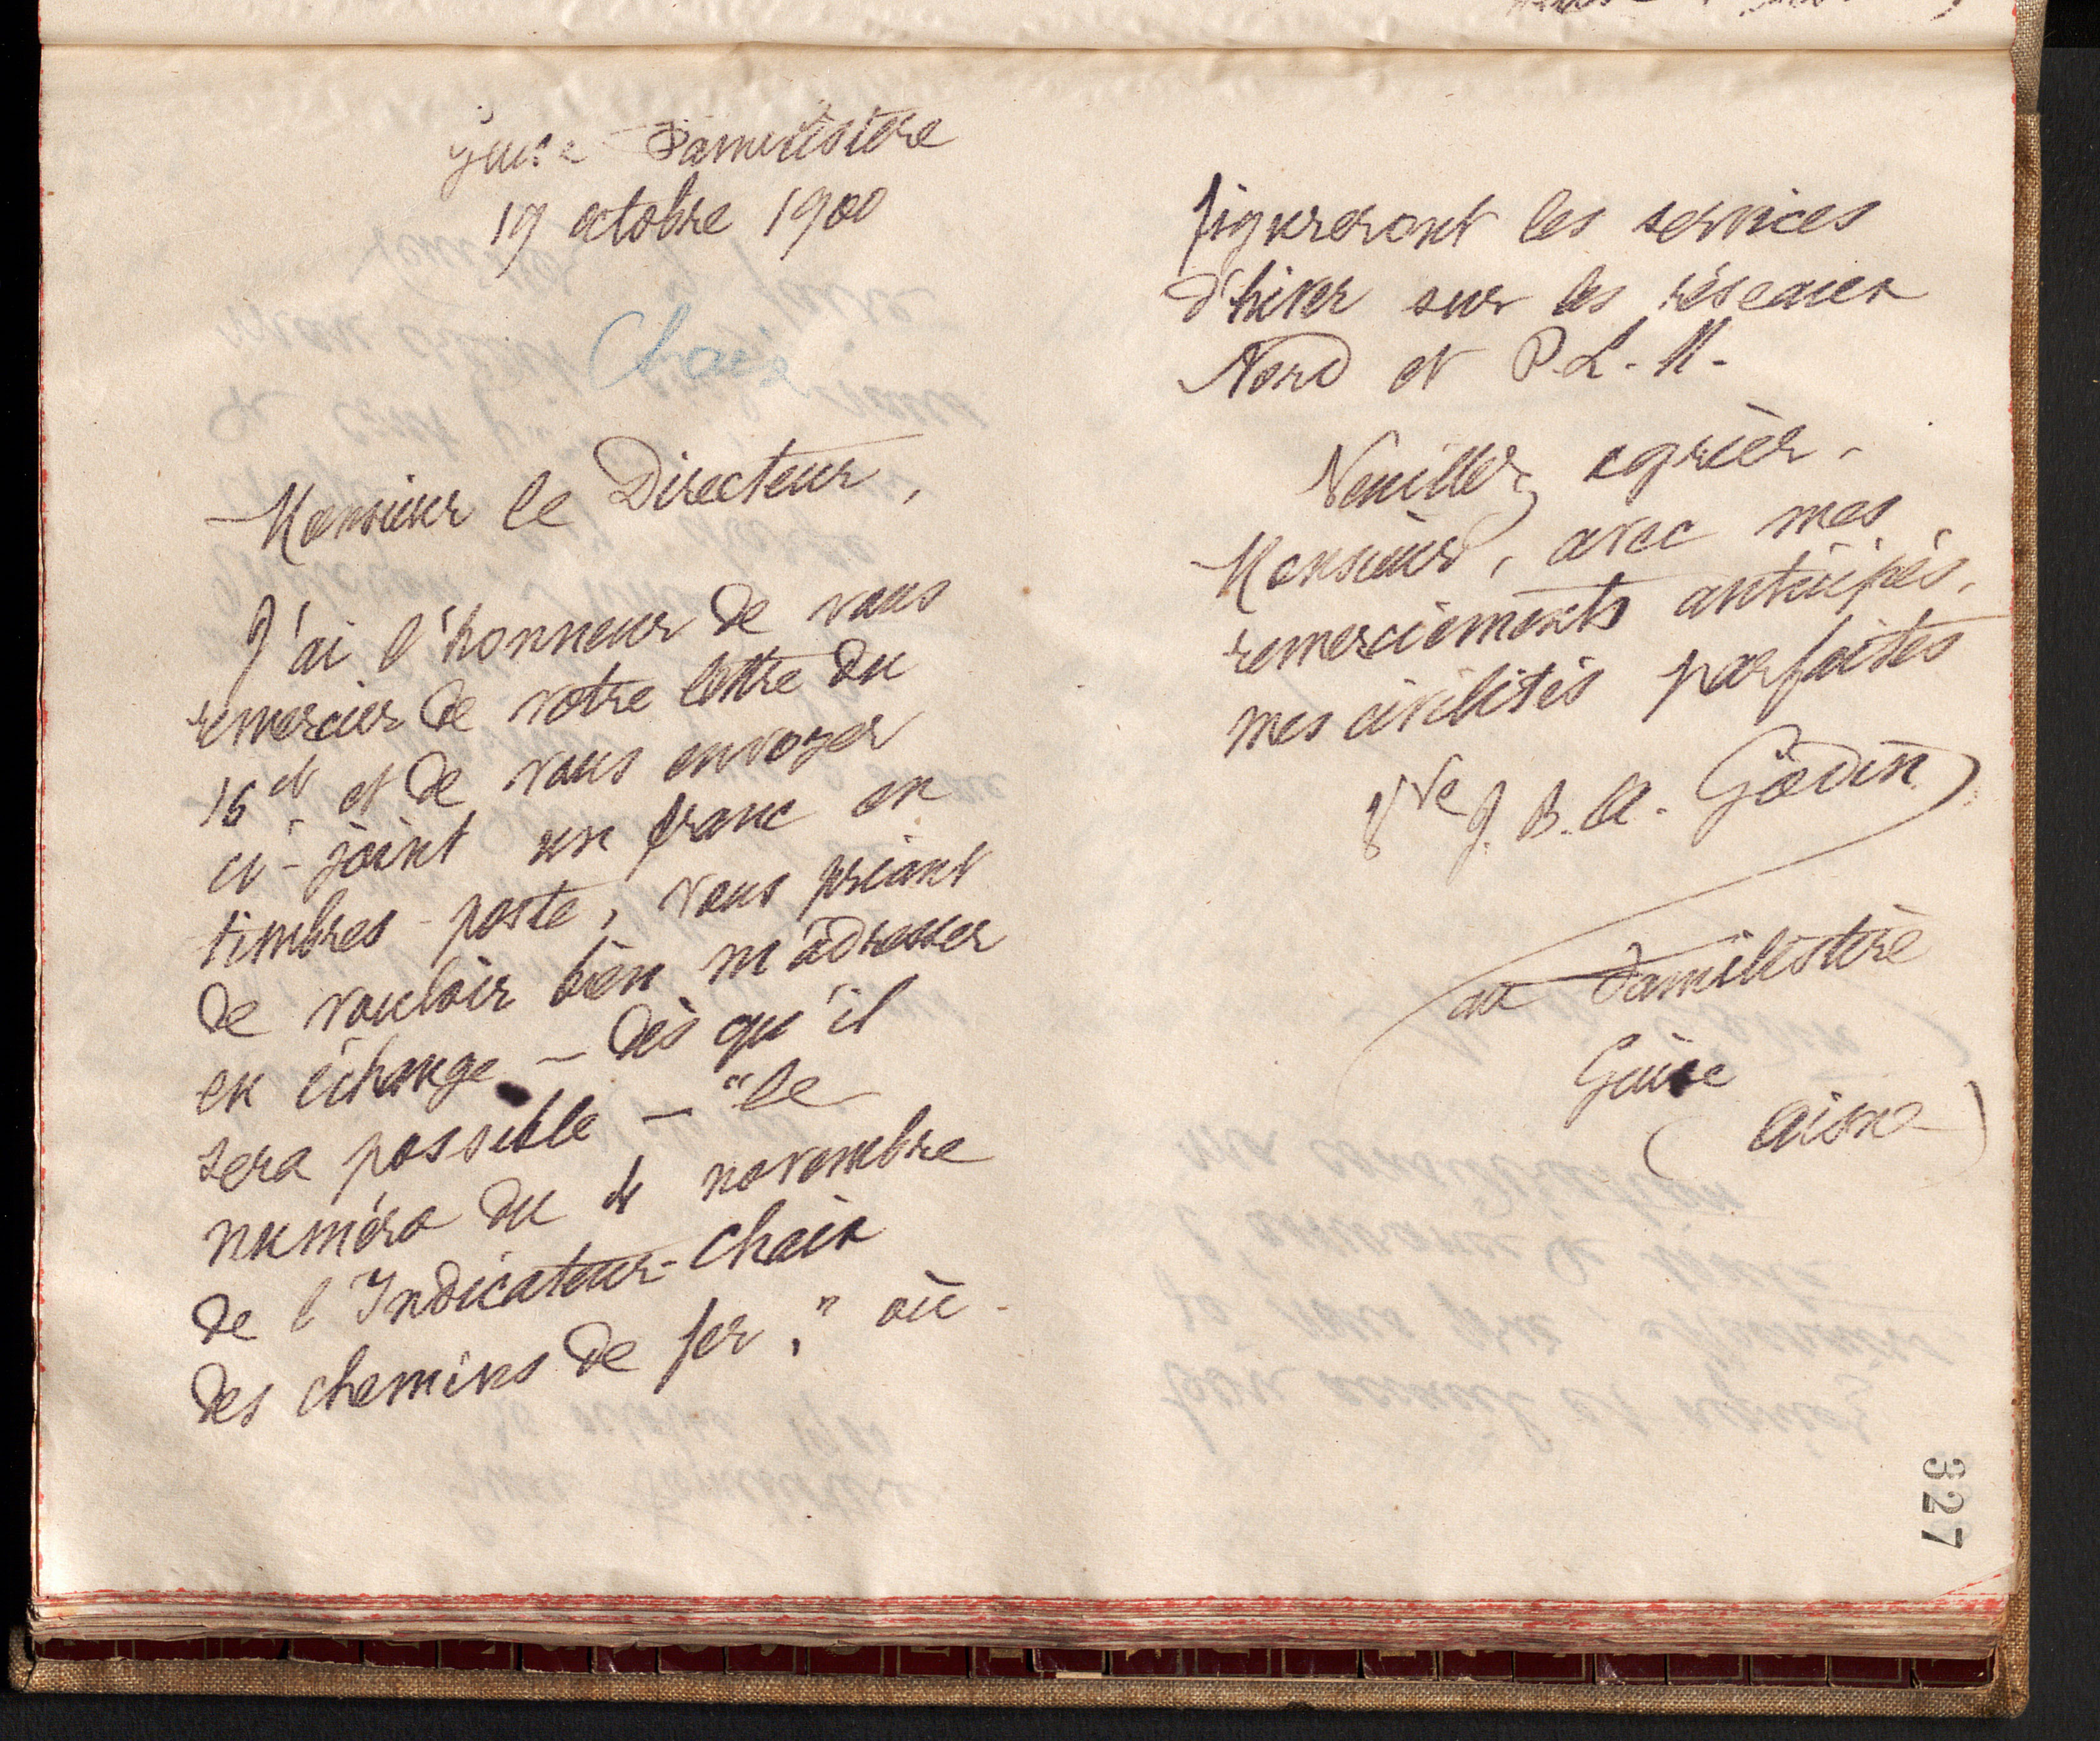 Guise Familistère
19 octobre 1900
Chaix
Monsieur le Directeur,
J'ai l'honneur de vous
remercier de votre lettre du
16 ct et de vous envoyer
ci-joint un franc en
timbres-poste, vous priant
de vouloir bien m'adresser
en échange – dès qu'il
sera possible – "le
numéro du 4 novembre
de l'Indicateur-Chaix
des chemins de fer," où
figureront les services
d'hiver sur les réseaux
Nord et P.L.M.
Veuillez agréer,
Monsieur, avec mes
remerciements anticipés,
mes civilités parfaites
Vve J. B. A. Godin
au Familistère
Guise
(Aisne)
327